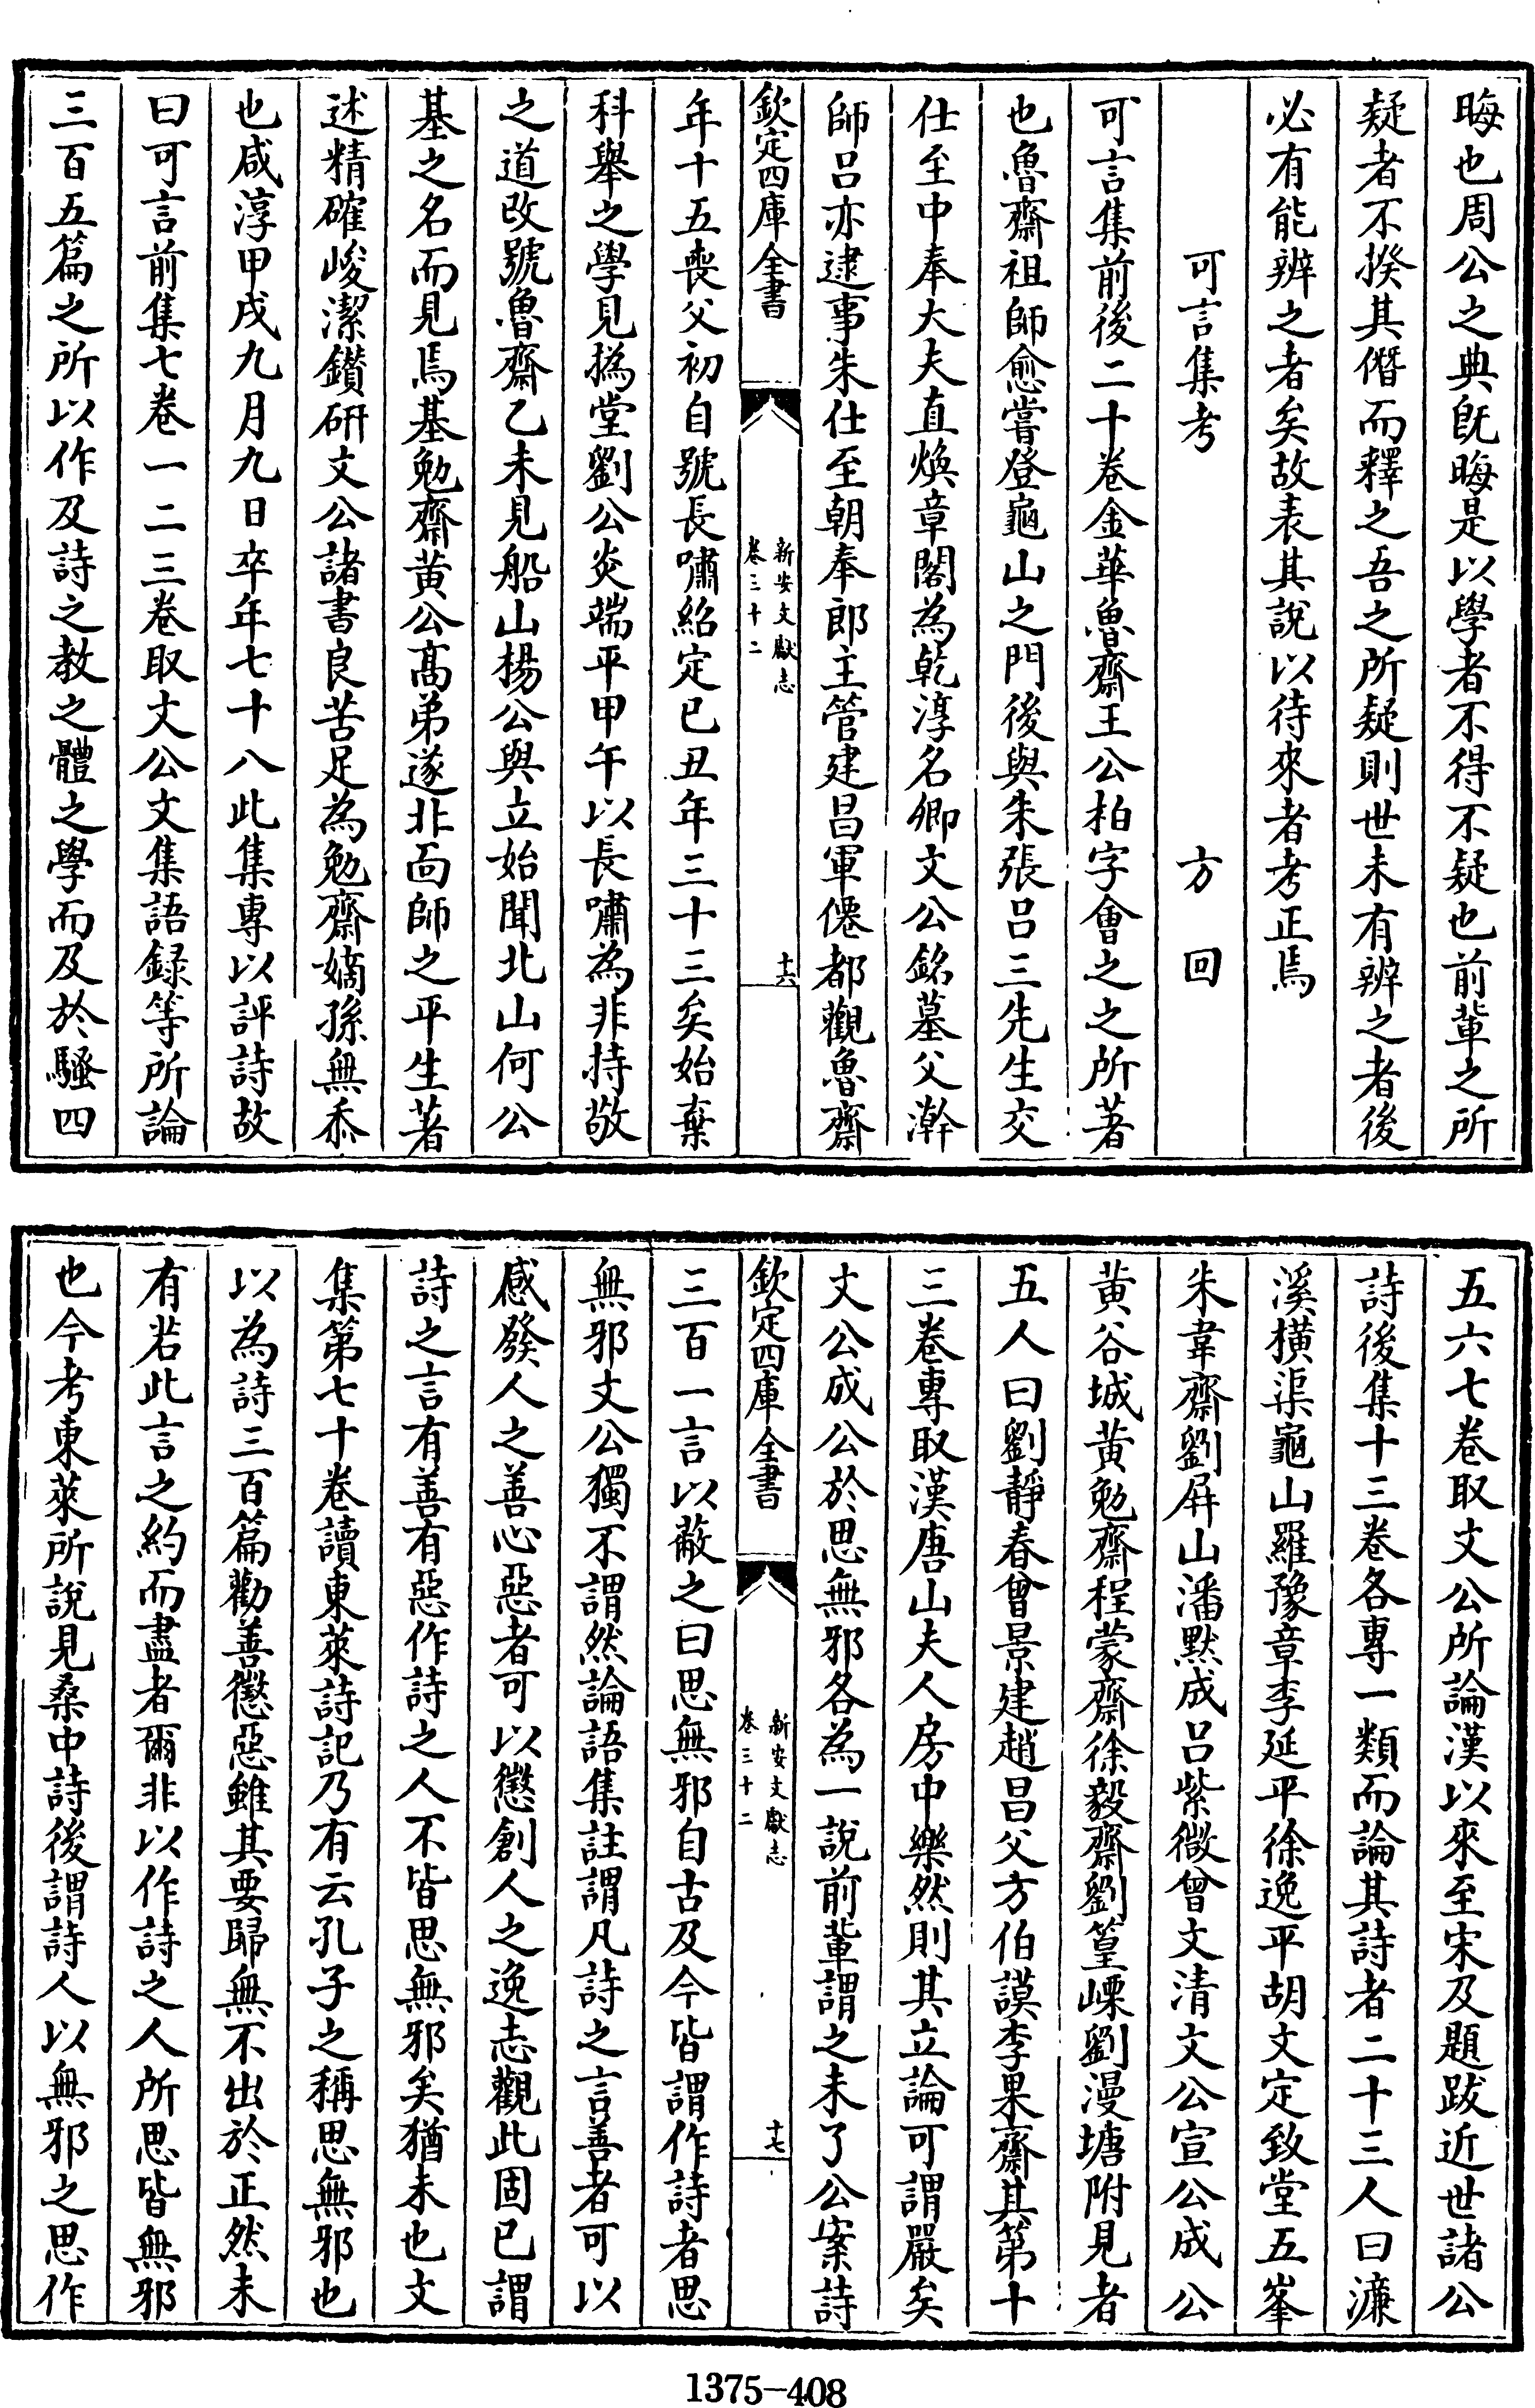 晦也周公之典既晦是以學者不得不疑也前輩之所
疑者不揆其僭而釋之吾之所疑則世未有辨之者後
必有能辨之者矣故表其說以待來者考正焉
可言集考 方回
可言集前後二十卷金華魯齋王公柏字會之之所著
也魯齋祖師愈嘗登龜山之門後與朱張呂三先生交
仕至中奉大夫直煥章閣為乾淳名卿文公銘墓父瀚
師呂亦逮事朱仕至朝奉郎主管建昌軍僊都觀魯齋
欽定四庫全書
新安文獻志
卷三十二
十六
年十五喪父初自號長嘯紹定已丑年三十三矣始棄
科舉之學見撝堂劉公炎端平甲午以長嘯為非持敬
之道改號魯齋乙未見船山楊公與立始聞北山何公
基之名而見焉基勉齋黃公高弟遂北面師之平生著
述精確峻潔鑚研文公諸書良苦足為勉齋嫡孫無忝
也咸淳甲戌九月九日卒年七十八此集專以評詩故
曰可言前集七卷一二三卷取文公文集語録等所論
三百五篇之所以作及詩之教之體之學而及於騷四
五六七卷取文公所論漢以來至宋及題跋近世諸公
詩後集十三卷各專一類而論其詩者二十三人曰濂
溪横渠龜山羅豫章李延平徐逸平胡文定致堂五峯
朱韋齋劉屏山潘默成呂紫微曾文清文公宣公成公
黃谷城黃勉齋程蒙齋徐毅齋劉篁㟳劉漫塘附見者
五人曰劉靜春曾景建趙昌父方伯謨李果齋其第十
三卷專取漢唐山夫人房中樂然則其立論可謂嚴矣
文公成公於思無邪各為一說前輩謂之未了公案詩
欽定四庫全書
新安文獻志
卷三十二
十七
三百一言以蔽之曰思無邪自古及今皆謂作詩者思
無邪文公獨不謂然論語集註謂凡詩之言善者可以
感發人之善心惡者可以懲創人之逸志觀此固已謂
詩之言有善有惡作詩之人不皆思無邪矣猶未也文
集第七十卷讀東萊詩記乃有云孔子之稱思無邪也
以為詩三百篇勸善懲惡雖其要歸無不出於正然未
有若此言之約而盡者爾非以作詩之人所思皆無邪
也今考東萊所說見桑中詩後謂詩人以無邪之思作
1375-408